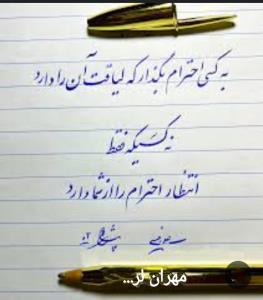 به کسی احترام بگذار که لیاقت آن را دارد
نه کسیکه فقط
انتظار احترام را از شما دارد
مهران لر...